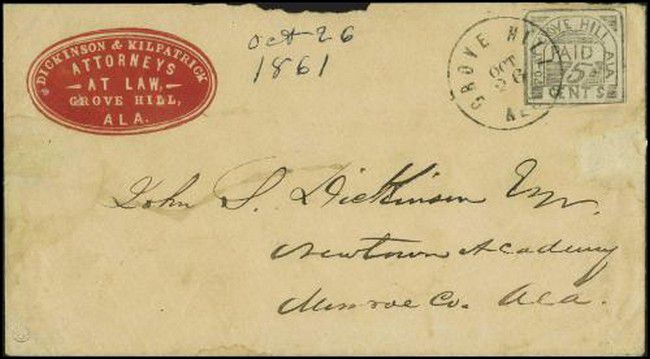 DICKINSON & KILPATRICK
ATTORNEYS
AT LAW,
GROVE HILL,
ALA.
Oct 26
1861
GROVE HILL
OCT
26
ALA
GROVE HILL, ALA.
PAID
5
CENTS
John S. Dickinson Esqr.
Newtown Academy
Monroe Co. Ala.